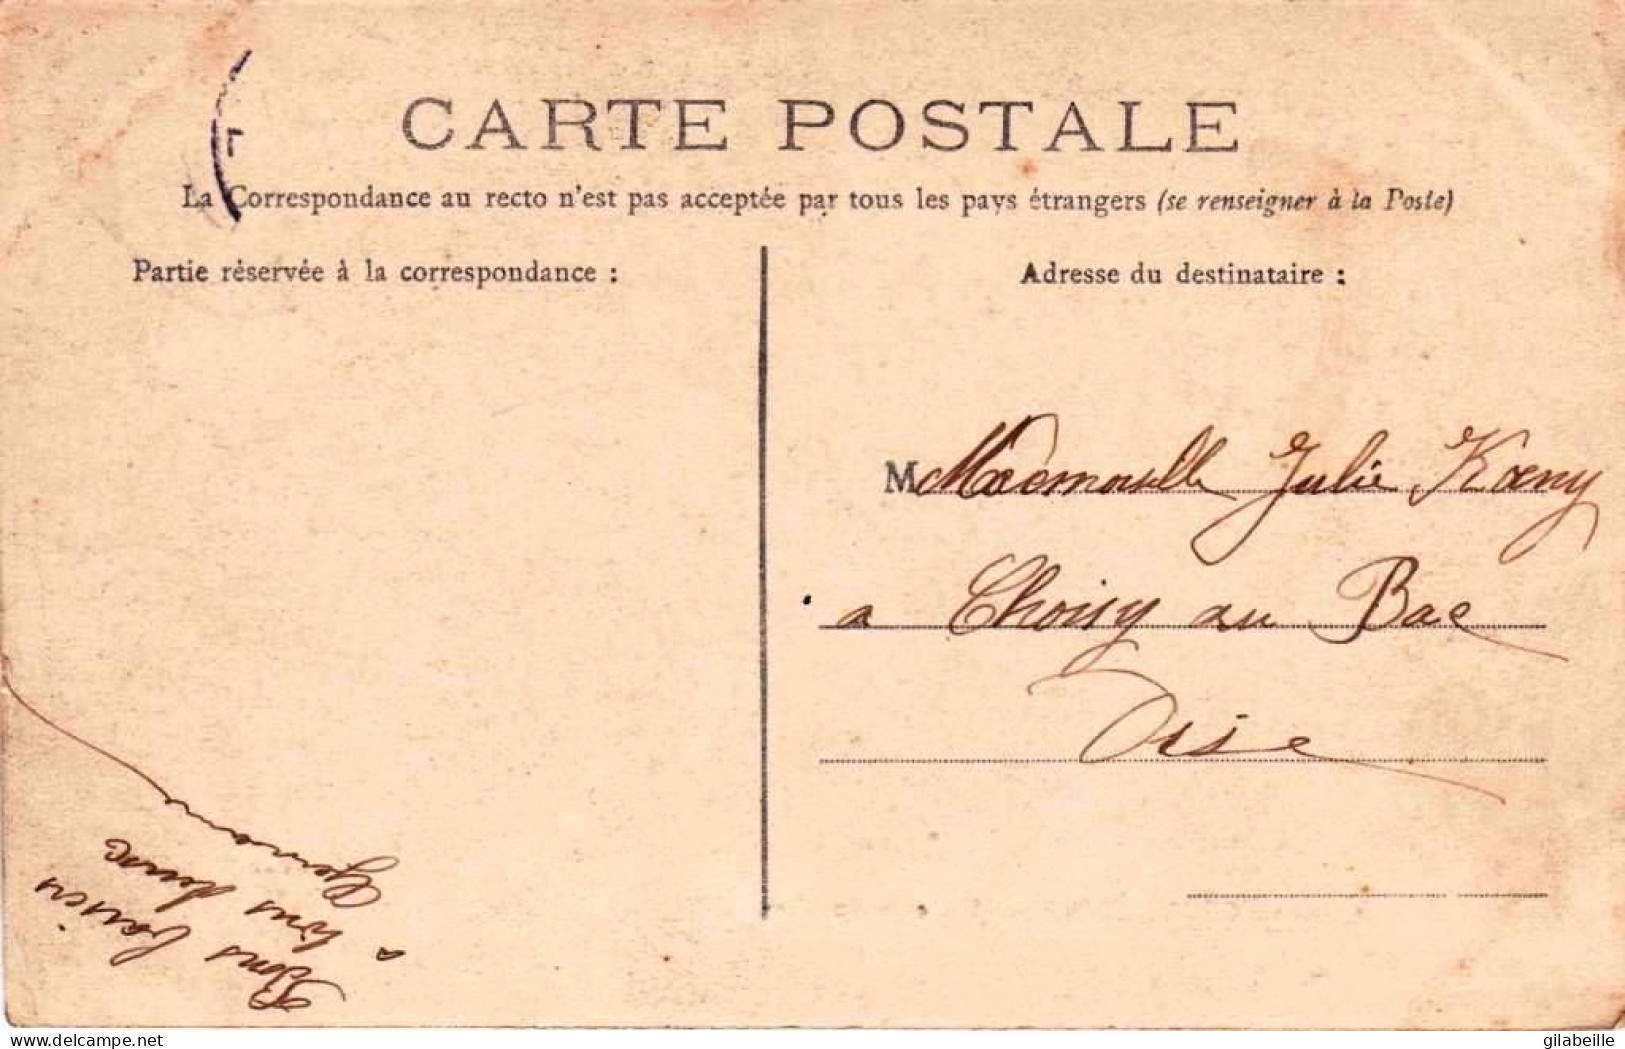 CARTE POSTALE
La Correspondance au recto n'est pas acceptée par tous les pays étrangers (se renseigner à la Poste)
Partie réservée à la correspondance :
Adresse du destinataire :
M Mademoiselle Julie Kœny
a Choisy au Bac
Oise
Bons baisers
a tous deux
Germaine
delcampe.net
gilabeille